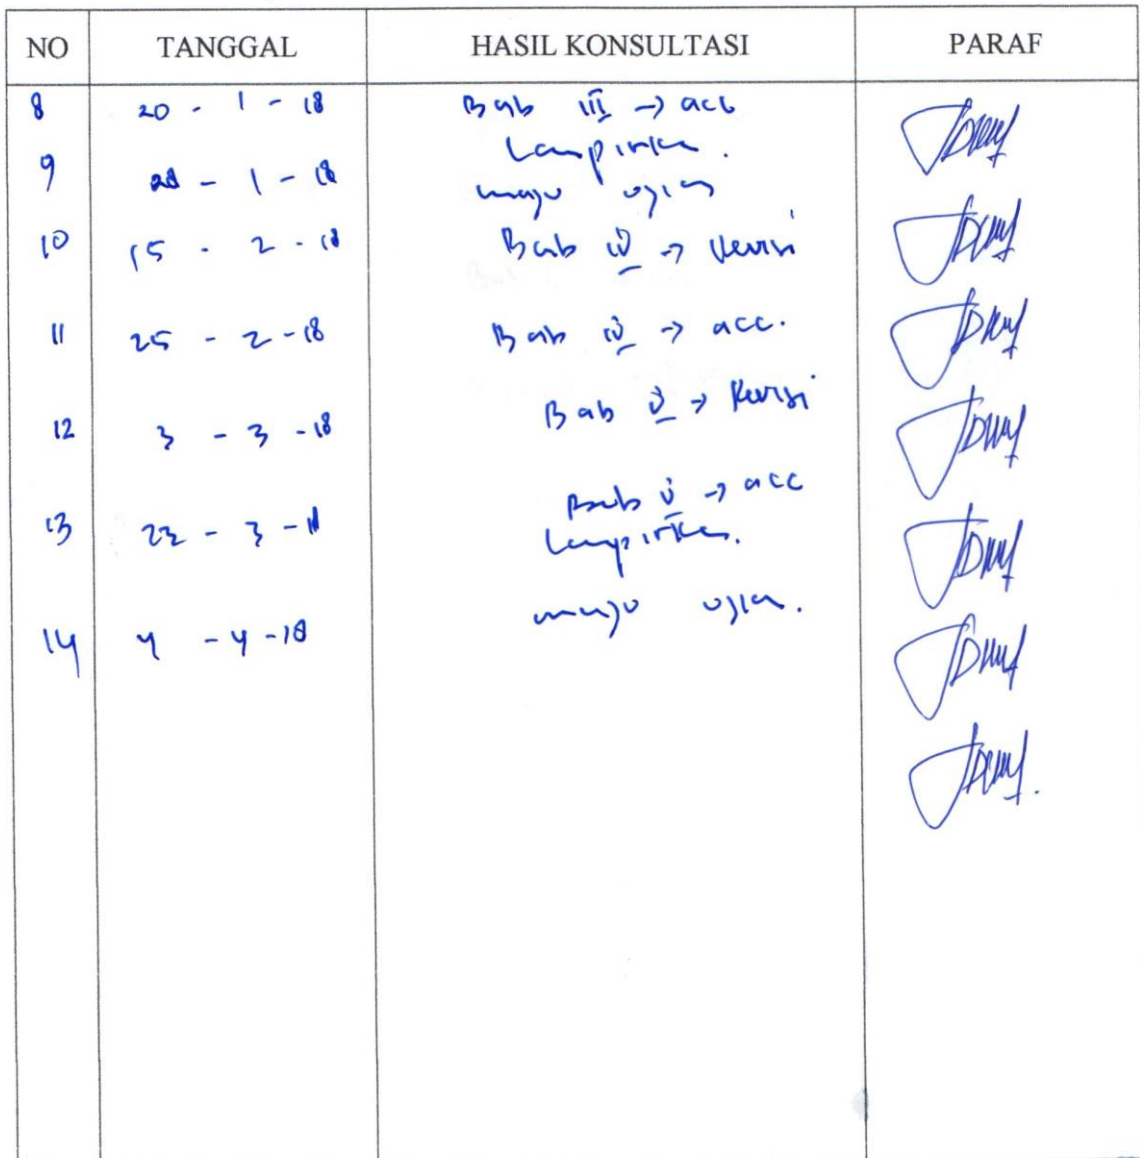 NO TANGGAL HASIL KONSULTASI PARAF
8 20 - 1 - 18 Bab III → acc
Lampirkan.
9 28 - 1 - 18 maju ujian
10 15 - 2 - 18 Bab IV → Revisi
11 25 - 2 - 18 Bab IV → acc.
12 3 - 3 - 18 Bab V → Revisi
Bab V → acc
13 - 3 - 18 Lampirkan.
maju ujian.
14 4 - 4 - 18